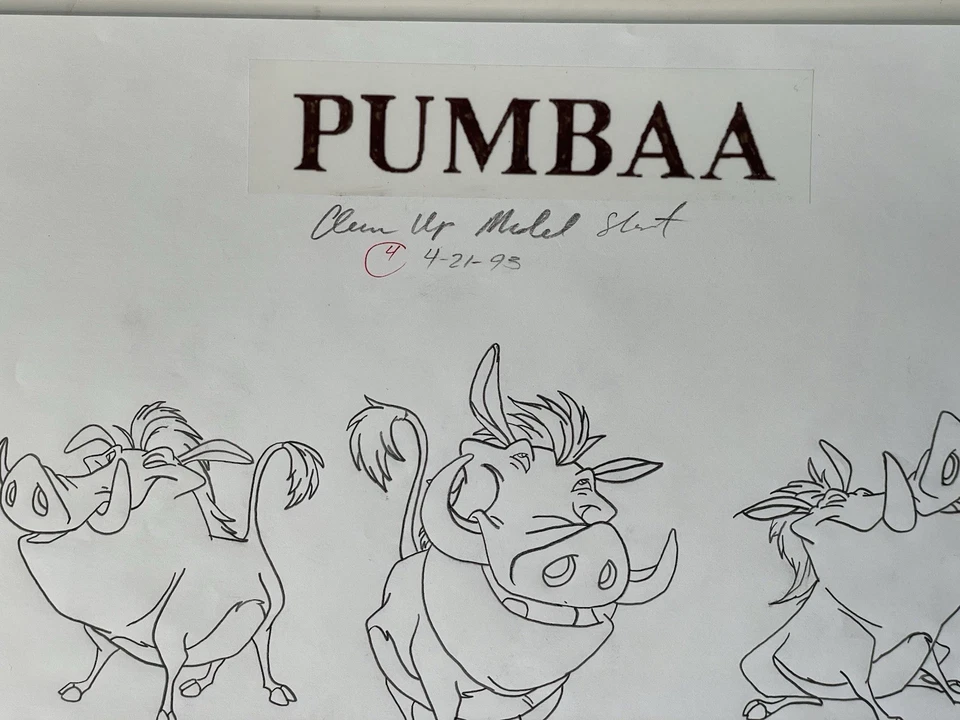 PUMBAA
Clean Up Model Sheet
4 4-21-93